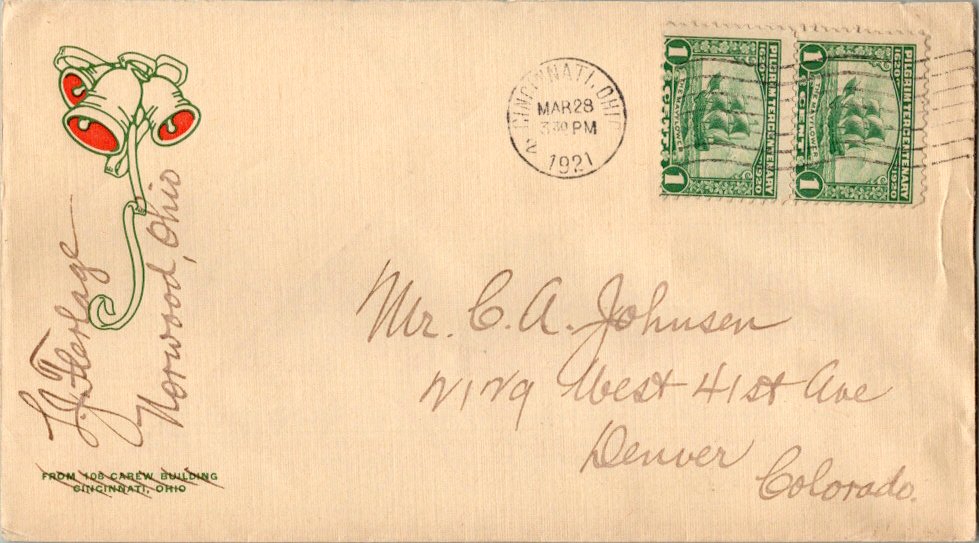 CINCINNATI, OHIO
MAR 28
3 30 PM
1921
1
PILGRIM TERCENTENARY
1620 1920
THE MAYFLOWER
1
1
PILGRIM TERCENTENARY
1620 1920
CENT
THE MAYFLOWER
1
Norwood, Ohio
Mr. C. A. Johnsen
West 41st Ave
Denver
Colorado.
FROM 108 CAREW BUILDING
CINCINNATI, OHIO